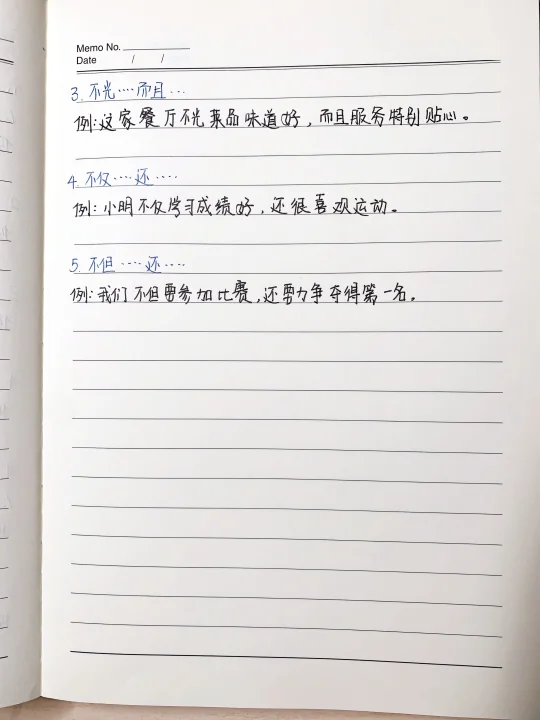 Memo No.
Date / /
3. 不光····而且···
例:这家餐厅不光菜品味道好，而且服务特别贴心。
4. 不仅····还····
例:小明不仅学习成绩好，还很喜欢运动。
5. 不但····还····
例:我们不但要参加比赛，还要力争夺得第一名。